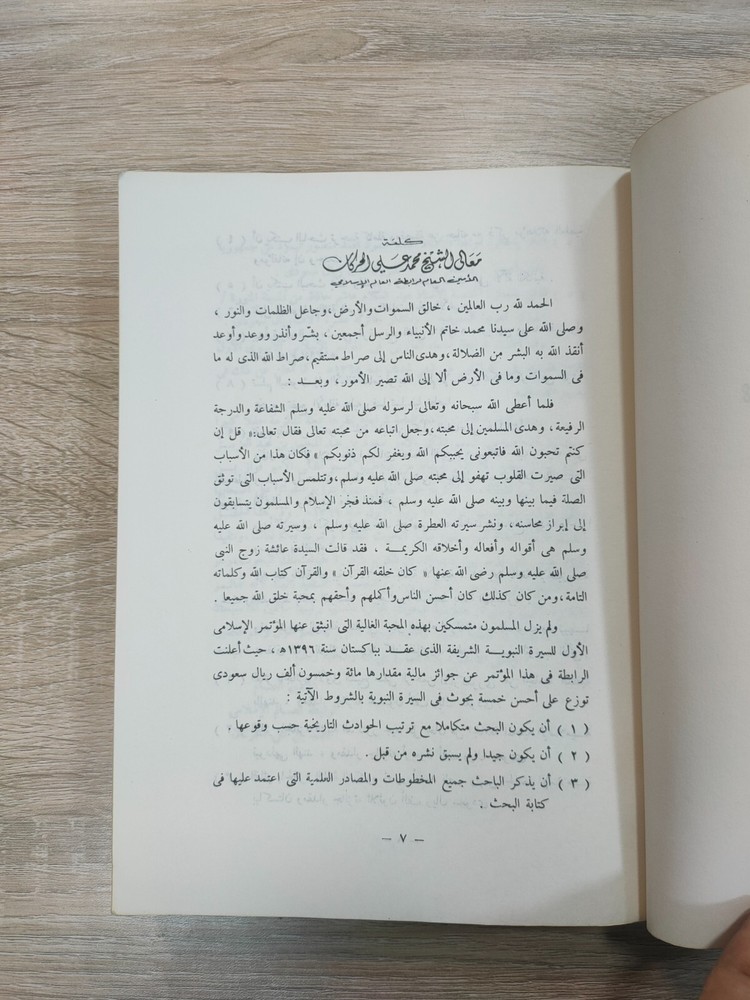 كلمة
معالي الشيخ محمد علي الحركان
الأمين العام لرابطة العالم الإسلامي
الحمد لله رب العالمين ، خالق السموات والأرض، وجاعل الظلمات والنور ،
وصلى الله على سيدنا محمد خاتم الأنبياء والرسل أجمعين ، بشّر وأنذر ووعد وأوعد
أنقذ الله به البشر من الضلالة، وهدى الناس إلى صراط مستقيم، صراط الله الذى له ما
فى السموات وما فى الأرض ألا إلى الله تصير الأمور، وبعـــد :
فلما أعطى الله سبحانه وتعالى لرسوله صلى الله عليه وسلم الشفاعة والدرجة
الرفيعة ، وهدى المسلمين إلى محبته، وجعل اتباعه من محبته تعالى فقال تعالى: « قل إن
كنتم تحبون الله فاتبعونى يحببكم الله ويغفر لكم ذنوبكم » فكان هذا من الأسباب
التى صيرت القلوب تهفو إلى محبته صلى الله عليه وسلم، وتتلمس الأسباب التى توثق
الصلة فيما بينها وبينه صلى الله عليه وسلم ، فمنذ فجر الإسلام والمسلمون يتسابقون
إلى إبراز محاسنه، ونشر سيرته العطرة صلى الله عليه وسلم ، وسيرته صلى الله عليه
وسلم هى أقواله وأفعاله وأخلاقه الكريمـــة ، فقد قالت السيدة عائشة زوج النبى
صلى الله عليه وسلم رضى الله عنها « كان خلقه القرآن » والقرآن كتاب الله وكلماته
التامة، ومن كان كذلك كان أحسن الناس وأكملهم وأحقهم بمحبة خلق الله جميعا .
ولم يزل المسلمون متمسكين بهذه المحبة الغالية التى انبثق عنها المؤتمر الإسلامى
الأول للسيرة النبويـــة الشريفة الذى عقـــد بباكستان سنة ١٣٩٦ه ، حيث أعلنت
الرابطة فى هذا المؤتمر عن جوائز مالية مقدارها مائة وخمسون ألف ريال سعودى
توزع على أحسن خمسة بحوث فى السيرة النبوية بالشروط الآتية :
( ١ ) أن يكون البحث متكاملا مع ترتيب الحوادث التاريخية حسب وقوعها .
( ٢ ) أن يكون جيدا ولم يسبق نشره من قبل .
( ٣ ) أن يذكر الباحث جميع المخطوطات والمصادر العلمية التى اعتمد عليها فى
كتابة البحث .
— ٧ —